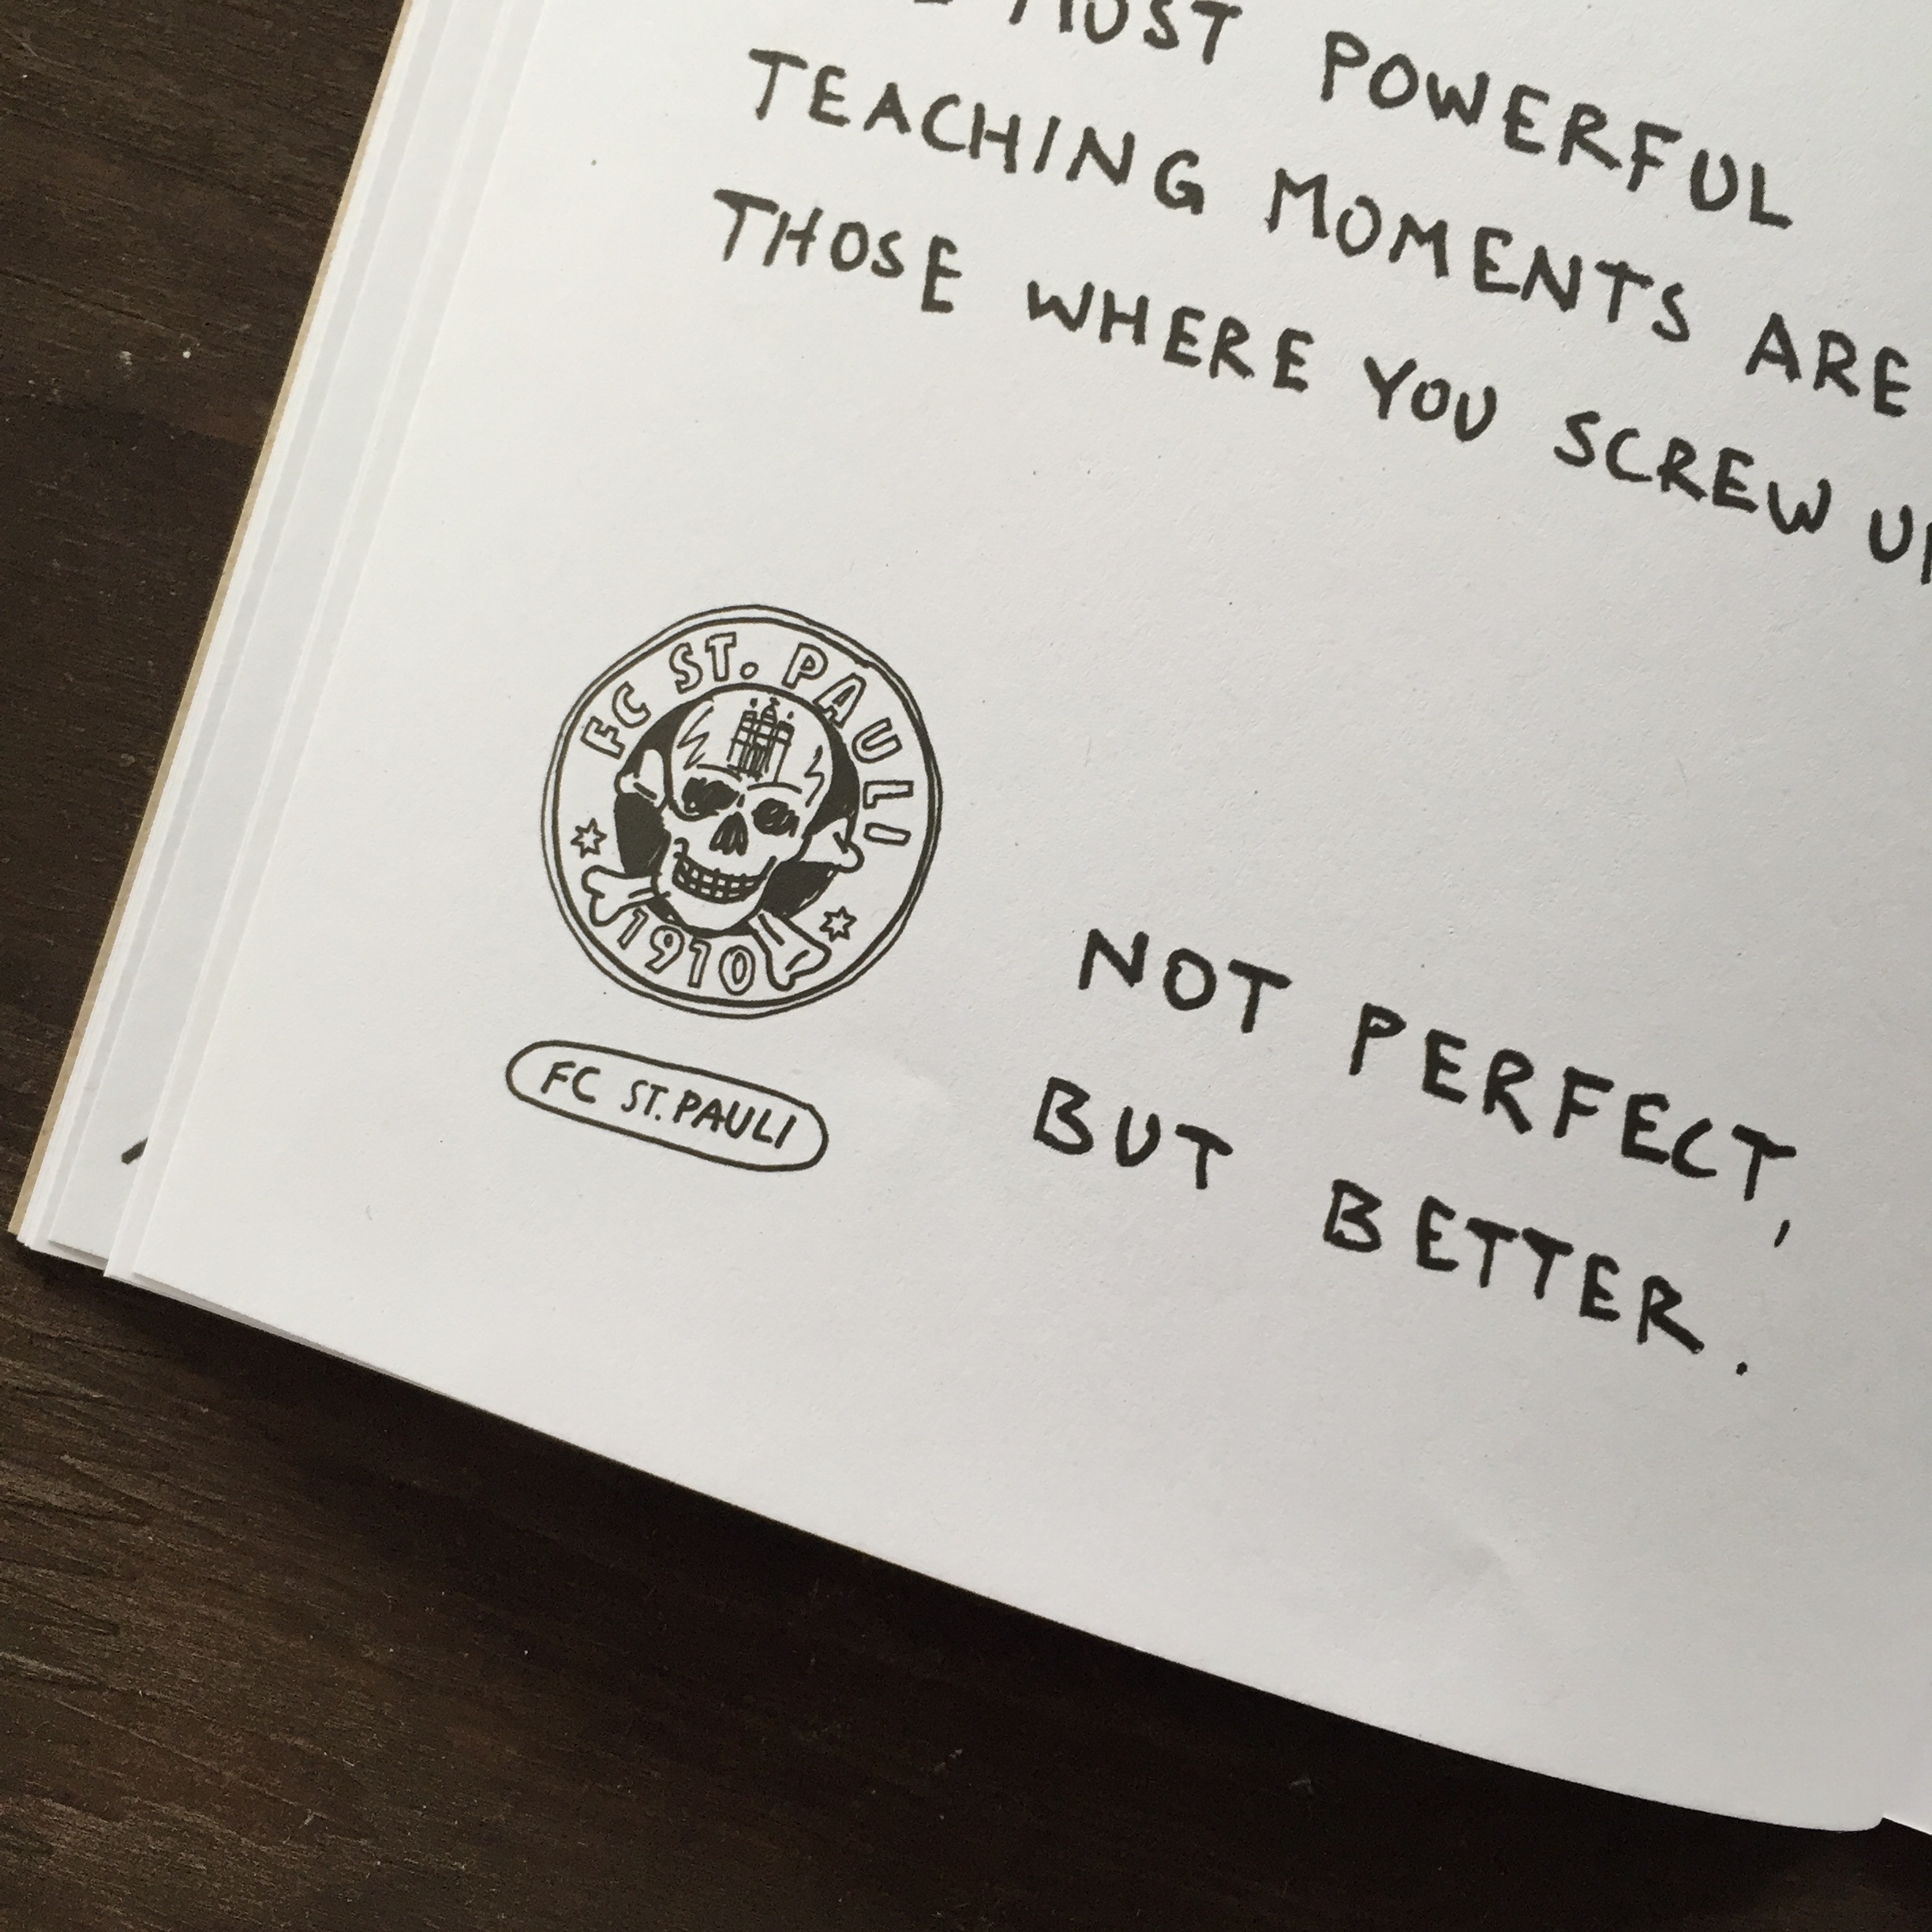 MOST POWERFUL
TEACHING MOMENTS ARE
THOSE WHERE YOU SCREW UP
FC ST. PAULI
1910
FC ST. PAULI
NOT PERFECT,
BUT BETTER.